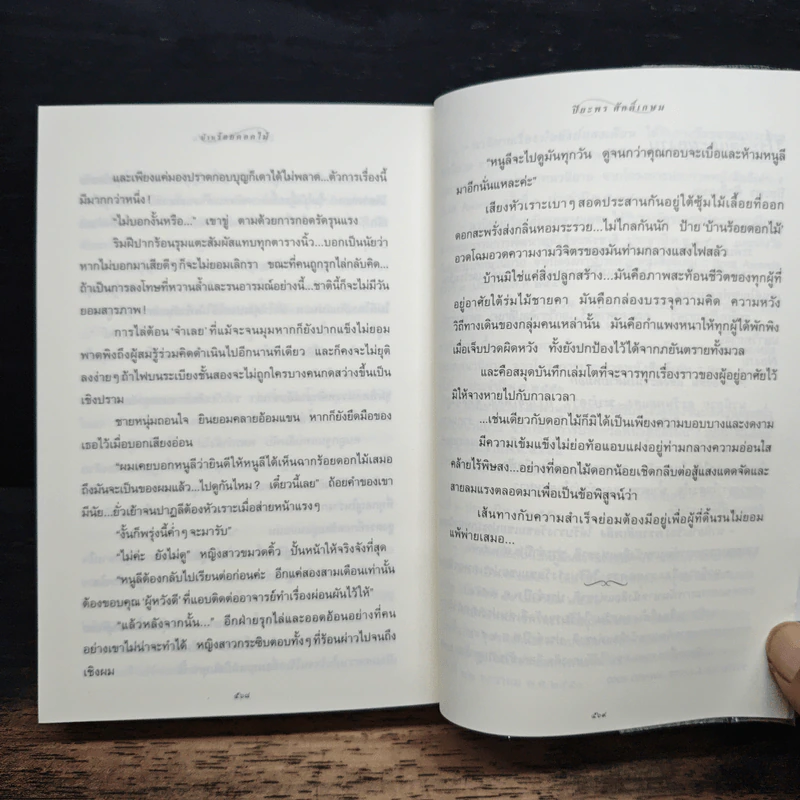 บ้านร้อยดอกไม้
และเพียงแค่มองปราดกอบบุญก็เดาได้ไม่พลาด...ตัวการเรื่องนี้
มีมากกว่าหนึ่ง!
“ไม่บอกงั้นหรือ...” เขาขู่ ตามด้วยการกอดรัดรุนแรง
ริมฝีปากร้อนรุมแตะสัมผัสแทบทุกตารางนิ้ว...บอกเป็นนัยว่า
หากไม่บอกมาเสียดีๆ ก็จะไม่ยอมเลิกรา ขณะที่คนถูกรุกไล่กลับคิด...
ถ้าเป็นการลงโทษที่หวานล้ำและรนอารมณ์อย่างนี้...ชาตินี้ก็จะไม่มีวัน
ยอมสารภาพ!
การไล่ต้อน ‘จำเลย’ ที่แม้จะจนมุมหากก็ยังปากแข็งไม่ยอม
พาดพิงถึงผู้สมรู้ร่วมคิดดำเนินไปอีกนานทีเดียว และก็คงจะไม่ยุติ
ลงง่ายๆ ถ้าไฟบนระเบียงชั้นสองจะไม่ถูกใครบางคนกดสว่างขึ้นเป็น
เชิงปราม
ชายหนุ่มถอนใจ ยินยอมคลายอ้อมแขน หากก็ยังยึดมือของ
เธอไว้เมื่อบอกเสียงอ่อน
“ผมเคยบอกหนูลีว่ายินดีให้หนูลีได้เห็นฉากร้อยดอกไม้เสมอ
ถึงมันจะเป็นของผมแล้ว...ไปดูกันไหม? เดี๋ยวนี้เลย” ถ้อยคำของเขา
มีนัย...ยั่วเย้าจนปาฏลีต้องหัวเราะเมื่อส่ายหน้าแรงๆ
“งั้นก็พรุ่งนี้ค่ำๆ จะมารับ”
“ไม่ค่ะ ยังไม่ดู” หญิงสาวขมวดคิ้ว ปั้นหน้าให้จริงจังที่สุด
“หนูลีต้องกลับไปเรียนต่อก่อนค่ะ อีกแค่สองสามเดือนเท่านั้น
ต้องขอบคุณ ‘ผู้หวังดี’ ที่แอบติดต่ออาจารย์ทำเรื่องผ่อนผันไว้ให้”
“แล้วหลังจากนั้น...” อีกฝ่ายรุกไล่และออดอ้อนอย่างที่คน
อย่างเขาไม่น่าจะทำได้ หญิงสาวกระซิบตอบทั้งๆ ที่ร้อนผ่าวไปจนถึง
เชิงผม
๕๖๘
ปิยะพร ศักดิ์เกษม
“หนูลีจะไปดูมันทุกวัน ดูจนกว่าคุณกอบจะเบื่อและห้ามหนูลี
มาอีกนั่นแหละค่ะ”
เสียงหัวเราะเบาๆ สอดประสานกันอยู่ใต้ซุ้มไม้เลื้อยที่ออก
ดอกสะพรั่งส่งกลิ่นหอมระรวย...ไม่ไกลกันนัก ป้าย ‘บ้านร้อยดอกไม้’
อวดโฉมอวดความงามวิจิตรของมันท่ามกลางแสงไฟสลัว
บ้านมิใช่แค่สิ่งปลูกสร้าง...มันคือภาพสะท้อนชีวิตของทุกผู้ที่
อยู่อาศัยใต้ร่มไม้ชายคา มันคือกล่องบรรจุความคิด ความหวัง
วิถีทางเดินของกลุ่มคนเหล่านั้น มันคือกำแพงหนาให้ทุกผู้ได้พักพิง
เมื่อเจ็บปวดผิดหวัง ทั้งยังปกป้องไว้ได้จากภยันตรายทั้งมวล
และคือสมุดบันทึกเล่มโตที่จะจารทุกเรื่องราวของผู้อยู่อาศัยไว้
มิให้จางหายไปกับกาลเวลา
...เช่นเดียวกับดอกไม้ก็มิได้เป็นเพียงความบอบบางและงดงาม
มีความเข้มแข็งไม่ย่อท้อแอบแฝงอยู่ท่ามกลางความอ่อนใส
คล้ายไร้พิษสง...อย่างที่ดอกไม้ดอกน้อยเชิดกลีบต่อสู้แสงแดดจัดและ
สายลมแรงตลอดมาเพื่อเป็นข้อพิสูจน์ว่า
เส้นทางกับความสำเร็จย่อมต้องมีอยู่เพื่อผู้ที่ดิ้นรนไม่ยอม
แพ้พ่ายเสมอ...
๕๖๙